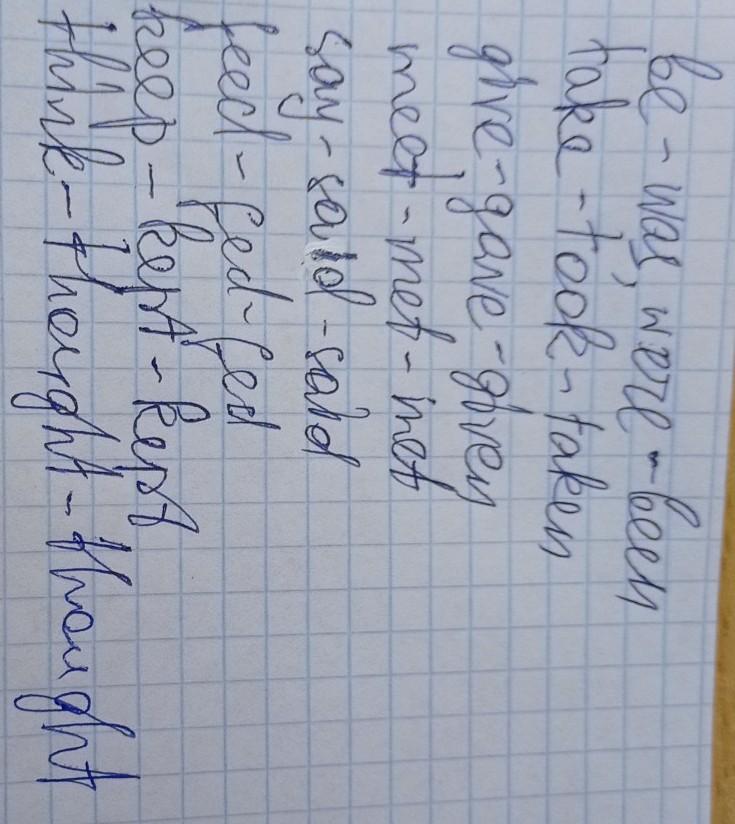 be - was, were - been
take - took - taken
give - gave - given
meet - met - met
say - said - said
feed - fed - fed
keep - kept - kept
think - thought - thought